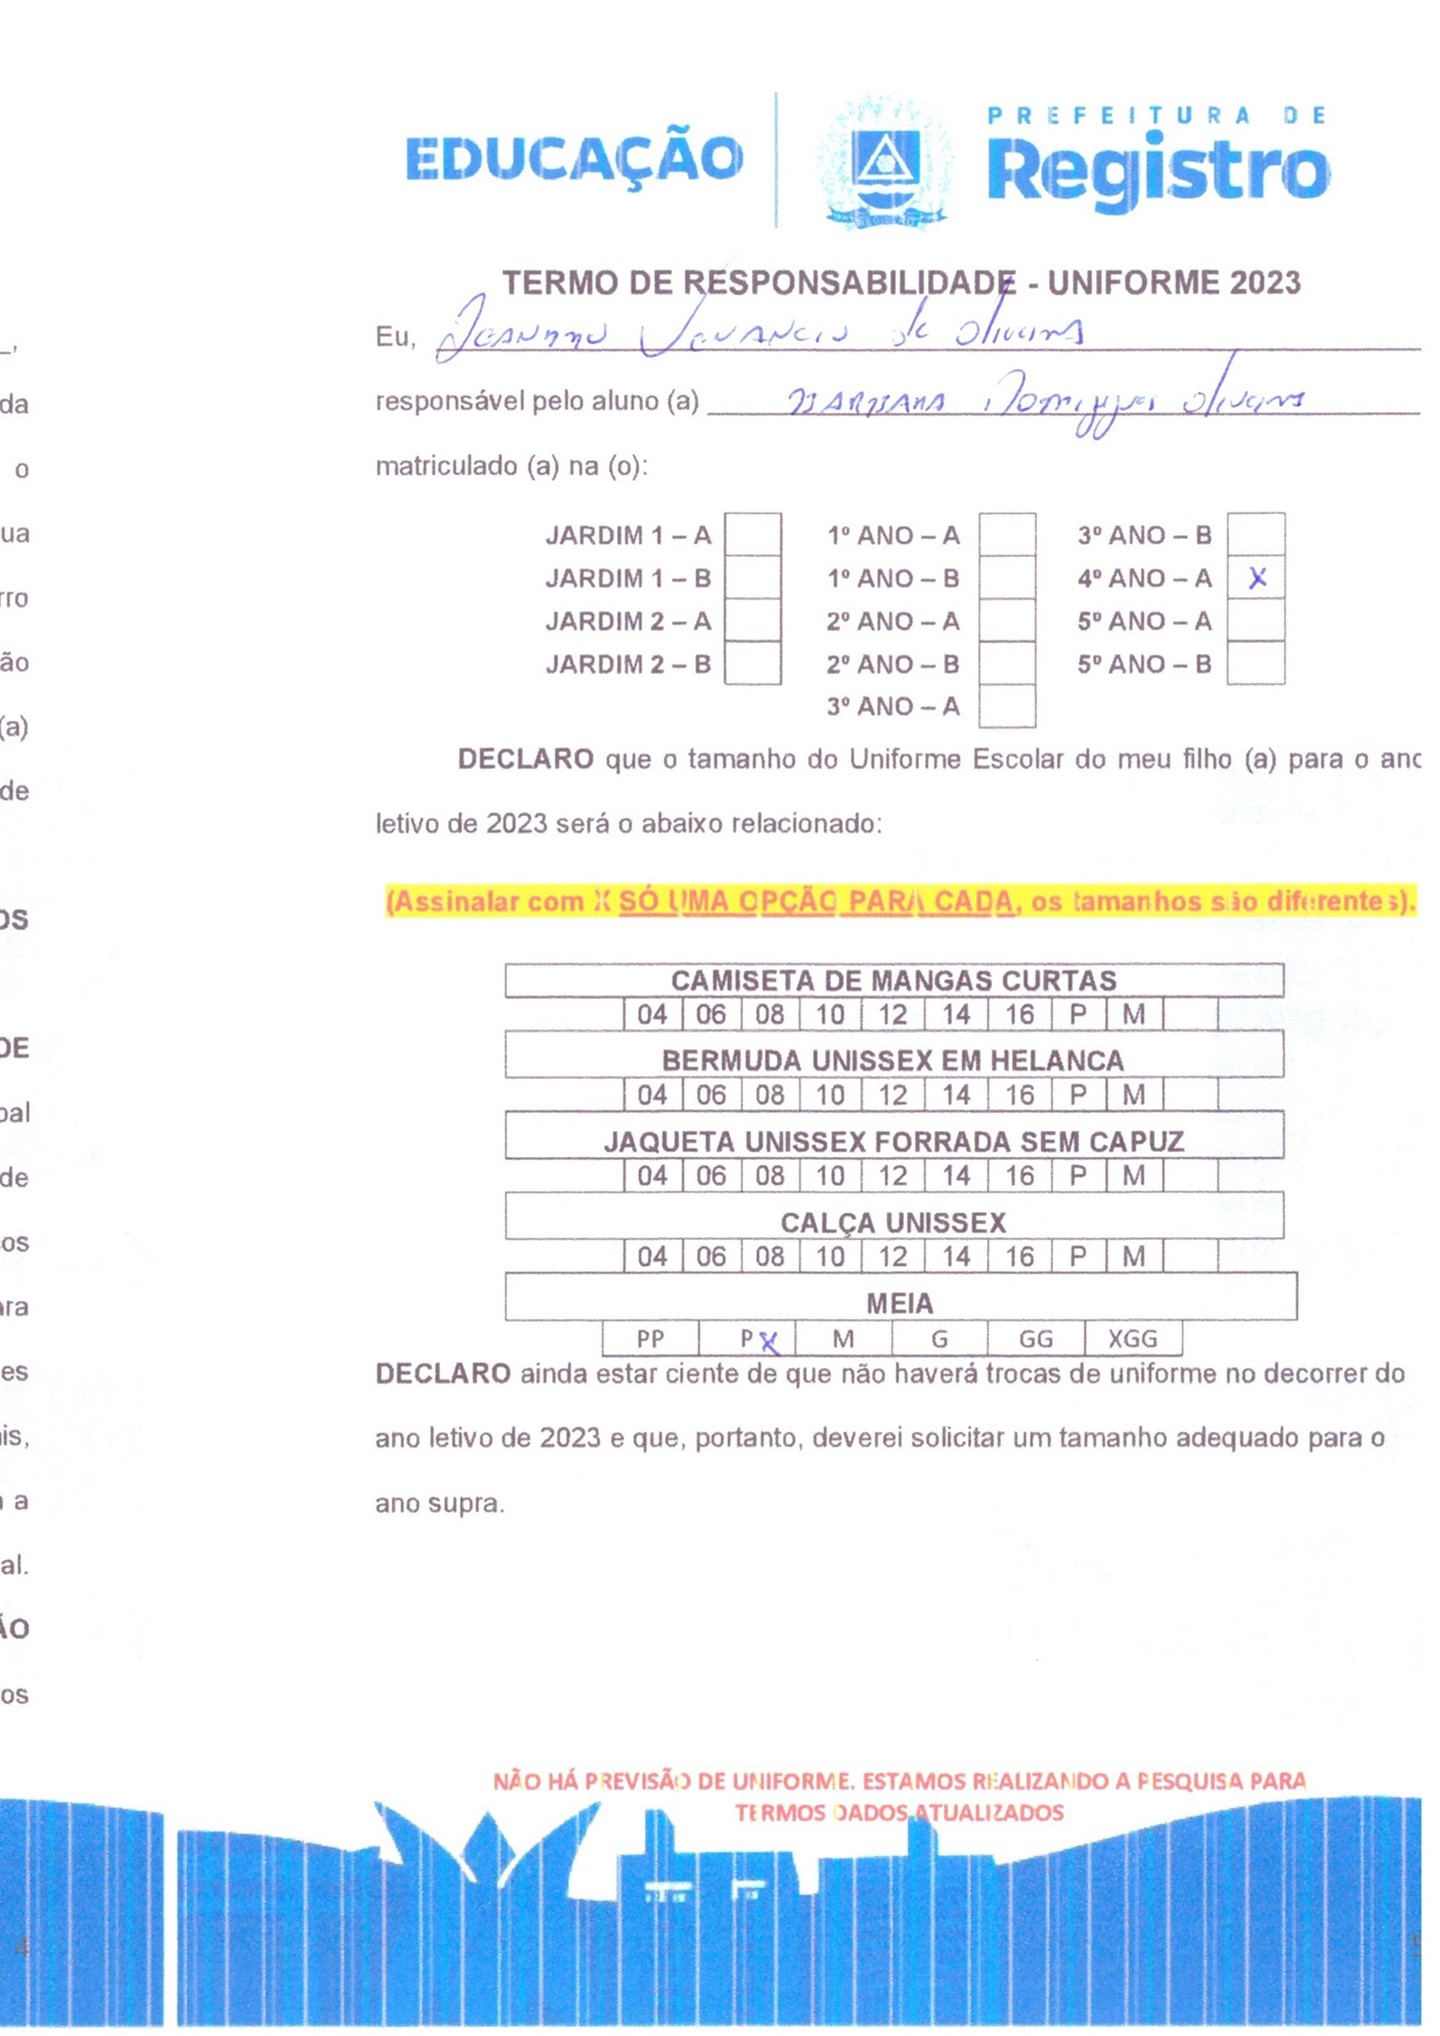 EDUCAÇÃO
PREFEITURA DE
Registro
TERMO DE RESPONSABILIDADE - UNIFORME 2023
Eu, de Oliveira
responsável pelo aluno (a) Oliveira
matriculado (a) na (o):
JARDIM 1 – A 1º ANO – A 3º ANO – B
JARDIM 1 – B 1º ANO – B 4º ANO – A X
JARDIM 2 – A 2º ANO – A 5º ANO – A
JARDIM 2 – B 2º ANO – B 5º ANO – B
3º ANO – A
DECLARO que o tamanho do Uniforme Escolar do meu filho (a) para o anc
letivo de 2023 será o abaixo relacionado:
(Assinalar com X SÓ UMA OPÇÃO PARA CADA, os tamanhos são diferentes).
CAMISETA DE MANGAS CURTAS
04 06 08 10 12 14 16 P M
BERMUDA UNISSEX EM HELANCA
04 06 08 10 12 14 16 P M
JAQUETA UNISSEX FORRADA SEM CAPUZ
04 06 08 10 12 14 16 P M
CALÇA UNISSEX
04 06 08 10 12 14 16 P M
MEIA
PP P X M G GG XGG
DECLARO ainda estar ciente de que não haverá trocas de uniforme no decorrer do
ano letivo de 2023 e que, portanto, deverei solicitar um tamanho adequado para o
ano supra.
NÃO HÁ PREVISÃO DE UNIFORME. ESTAMOS REALIZANDO A PESQUISA PARA
TERMOS DADOS ATUALIZADOS
da
o
ua
rro
ão
(a)
de
OS
DE
pal
de
sos
ara
es
is,
a
al.
ÃO
os
4